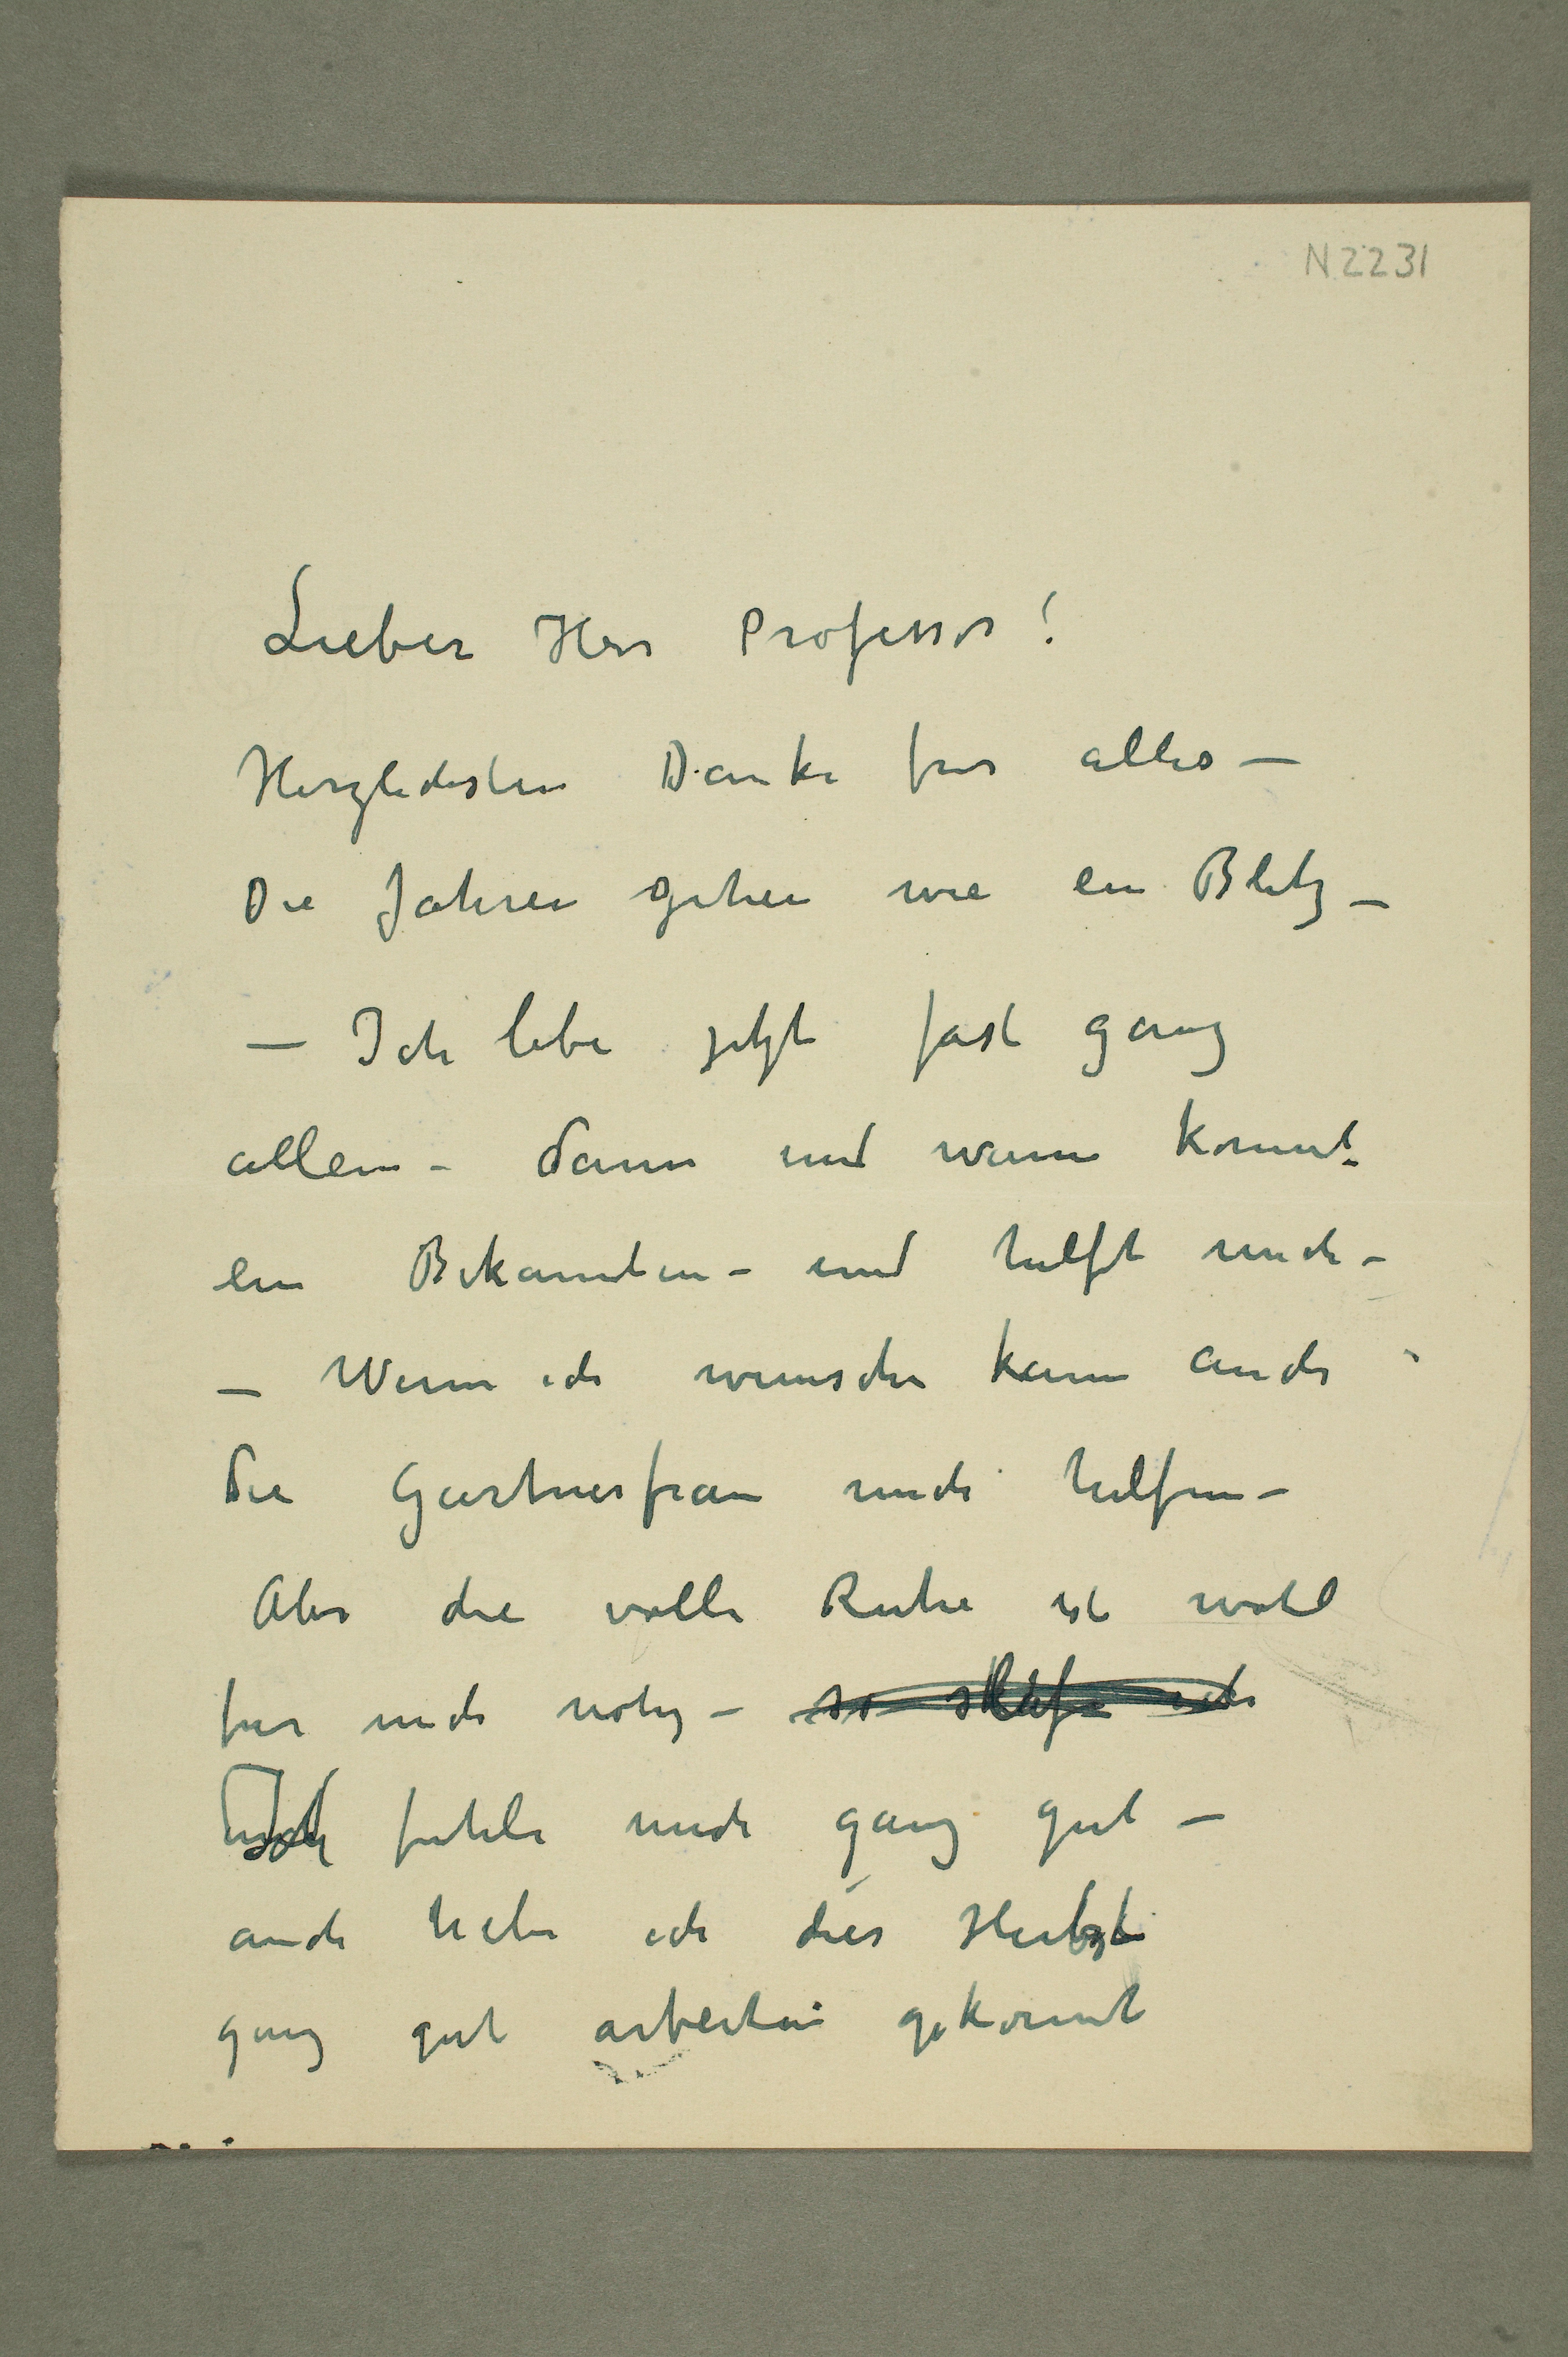 N 2231
Lieber Herr Professor!
Herzlichsten Danke für alles –
Die Jahren gehen wie ein Blitz –
– Ich lebe jetzt fast ganz
allein – dann und wann kommt
ein Bekannten – und hilft mich –
– Wenn ich wünsche kann auch
die Gartnerfrau mich hilfen –
Aber die volle Ruhe ist wohl
für mich nötig – so sklafe ich
Ich fühle mich ganz gut –
auch habe ich dies Herbst
ganz gut arbeiten gekonnt